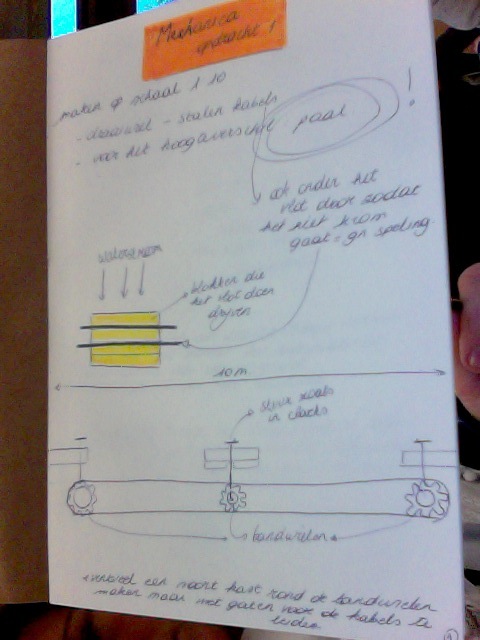 Mechanica
opdracht 1
maken op schaal 1 10
- draaiwiel - stalen kabels
- voor het hoogteverschil
paal !
ook onder het
vlot door zodat
het niet krom
gaat = gn speling
waterstroom
blokken die
het vlot doen
drijven
10 m
stuk zoals
in
bandwielen
een soort kast rond de bandwielen
maken maar met gaten voor de kabels te
leiden